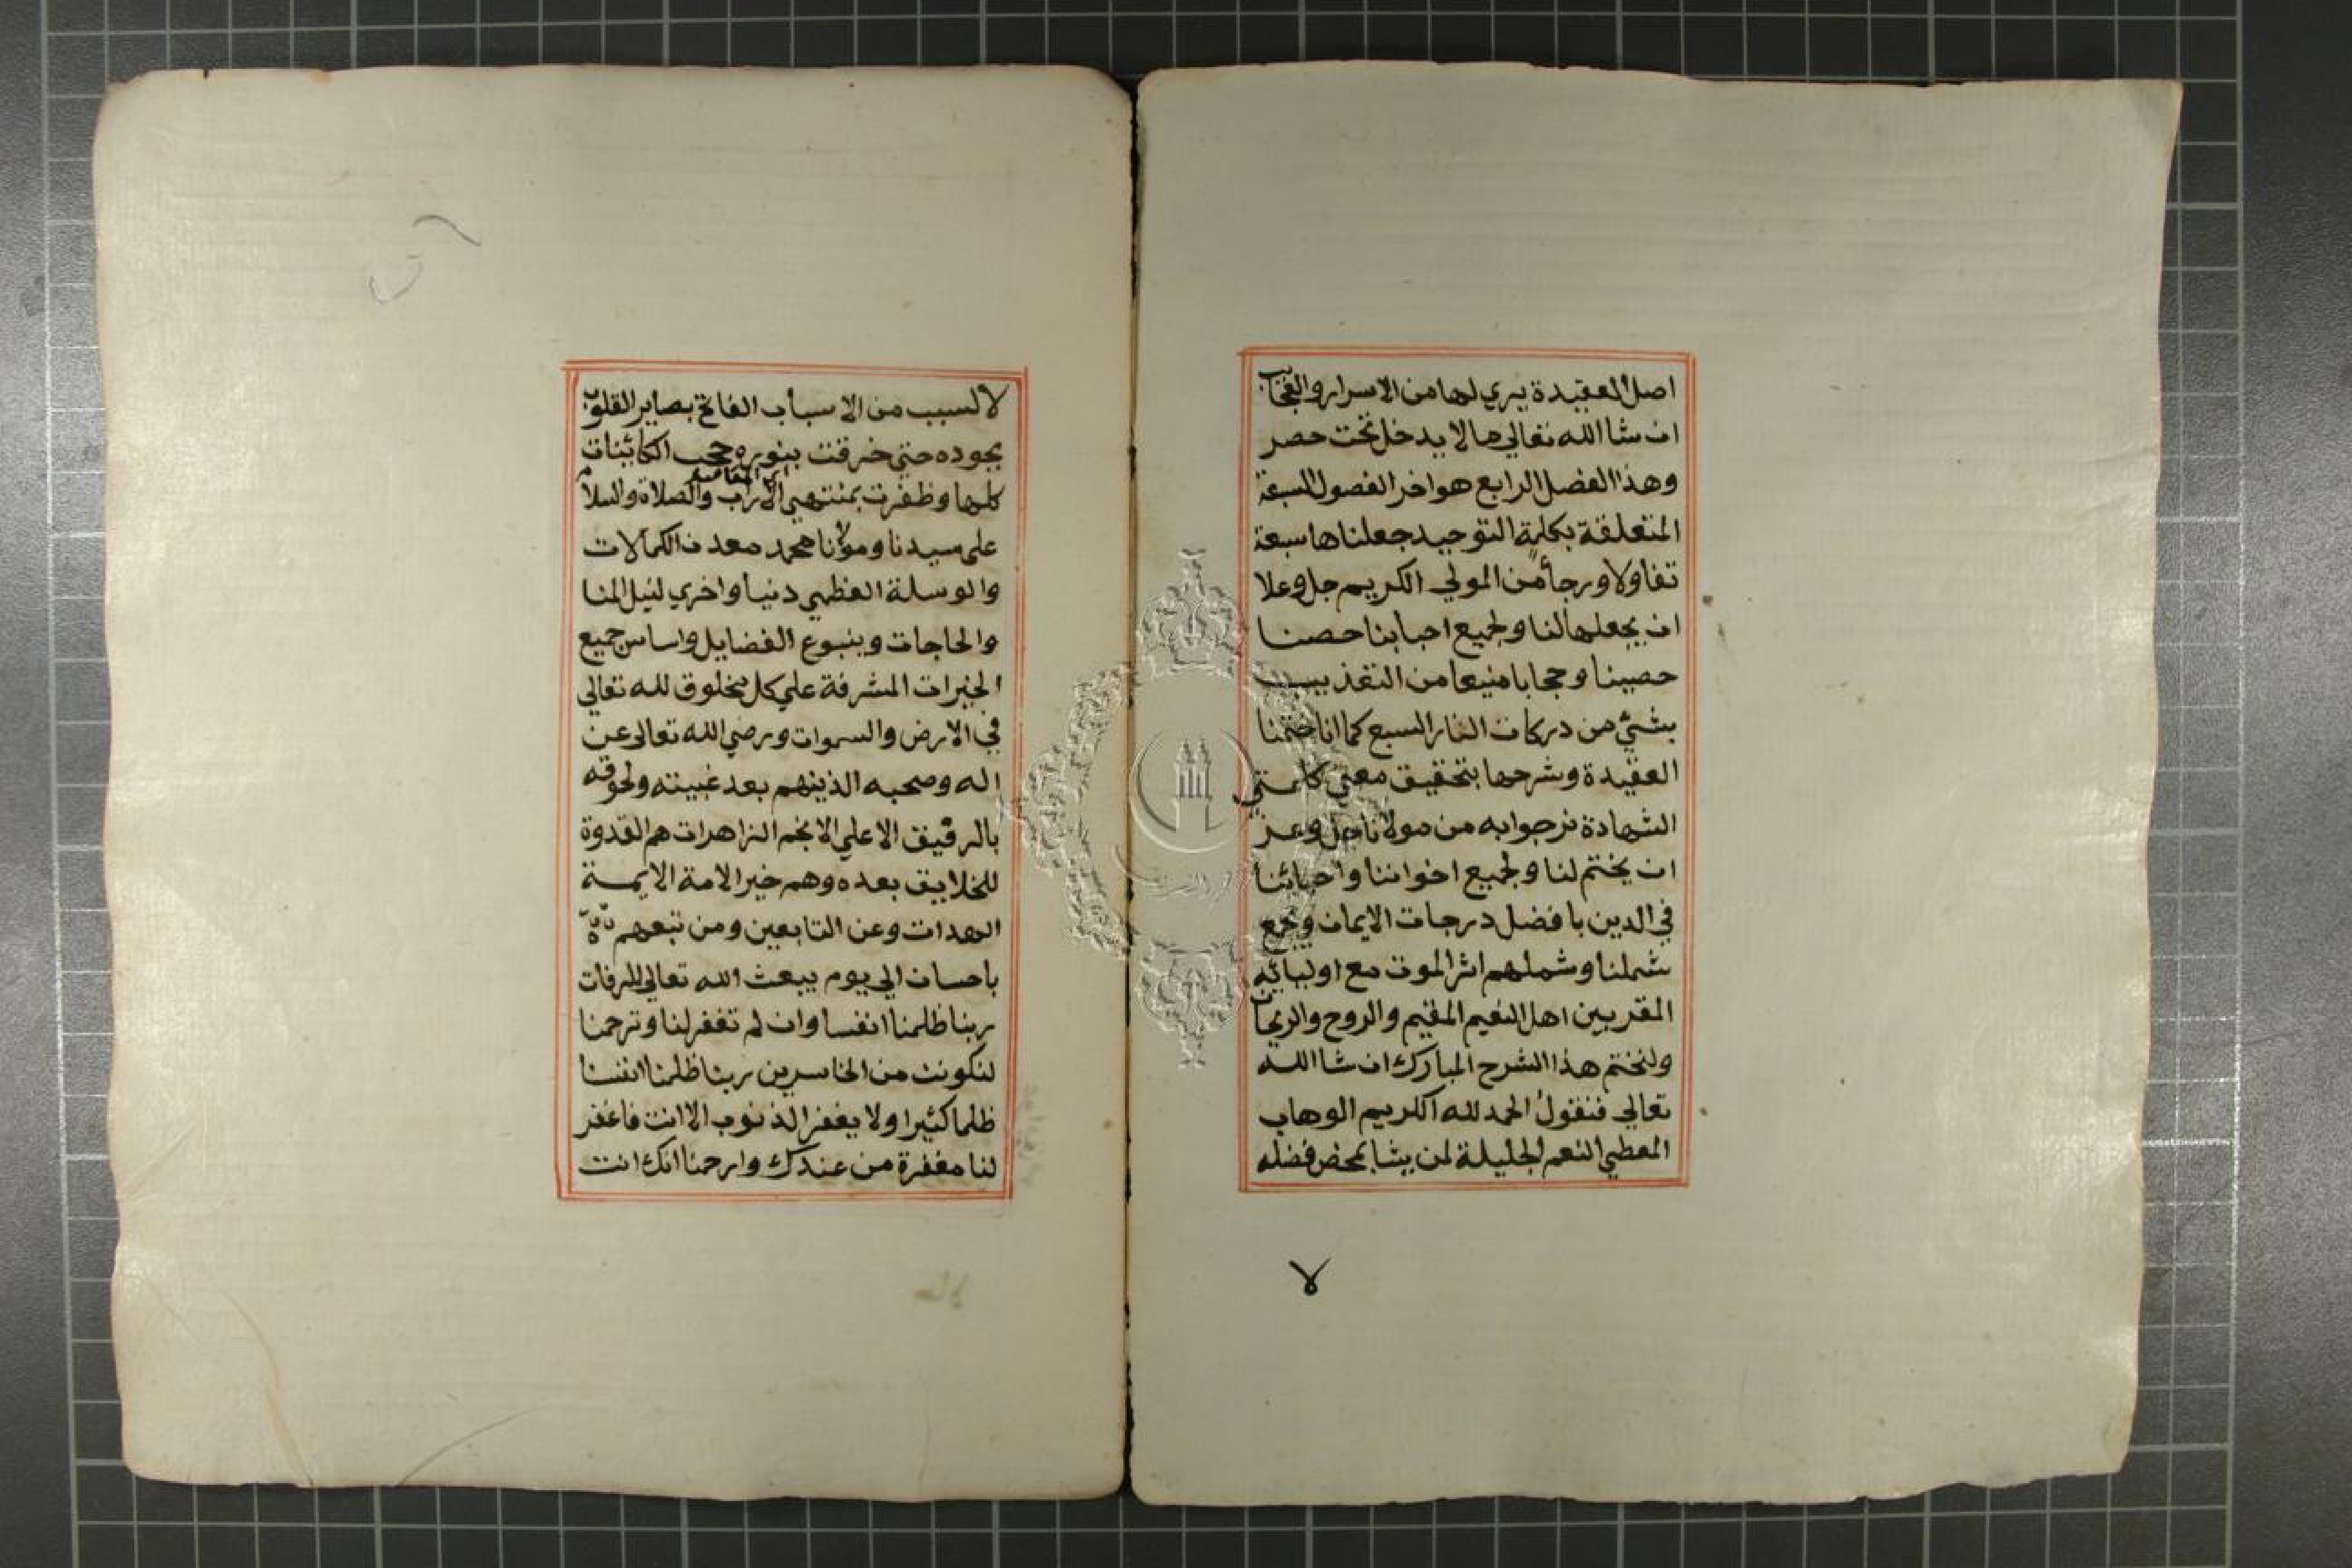 اصل العقيدة يري لها من الاسرار والعجايب
ان شا الله تعالي ما لا يدخل تحت حصر
وهذا الفصل الرابع هو اخر الفصول السبعة
المتعلقة بكلمة التوحيد جعلناها سبعة
تفاولا ورجأ من المولي الكريم جل وعلا
ان يجعلها لنا ولجميع احبابنا حصنا
حصينا وحجابا منيعا من التعذيب
بشئ من دركات النار السبع كما انا ختمنا
العقيدة وشرحها بتحقيق معني كلمتي
الشهادة نرجوا به من مولانا جل وعز
ان يختم لنا ولجميع اخواننا واحبائنا
في الدين بافضل درجات الايمان ويجمع
شملنا وشملهم اثر الموت مع اوليائه
المقربين اهل النعيم المقيم والروح والريحان
ولنختم هذا الشرح المبارك ان شا الله
تعالي فنقول الحمد لله الكريم الوهاب
المعطي النعم الجليلة لمن يشا بمحض فضله
لا
لا لسبب من الاسباب الفاتح بصاير القلوب
بجوده حتي خرقت بنوره حجب الكائنات
كلها وظفرت بمنتهي الاراب والصلاة والسلام
علي سيدنا ومولانا محمد معدن الكمالات
والوسلة العظمي دنيا واخري لنيل المنا
والحاجات وينبوع الفضايل واساس جميع
الخيرات المشرفة علي كل مخلوق لله تعالي
في الارض والسموات ورضي الله تعالي عن
اله وصحبه الذينهم بعد غيبته ولحوقه
بالرفيق الاعلي الانجم الزاهرات هم القدوة
للخلايق بعده وهم خير الامة الايمة
الهدات وعن التابعين ومن تبعهم
باحسان الي يوم يبعث الله تعالي الرفات
ربنا ظلمنا انفسا وان لم تغفر لنا وترحمنا
لنكونن من الخاسرين ربنا ظلمنا انفسنا
ظلما كثيرا ولا يغفر الذنوب الا انت فاغفر
لنا مغفرة من عندك وارحمنا انك انت